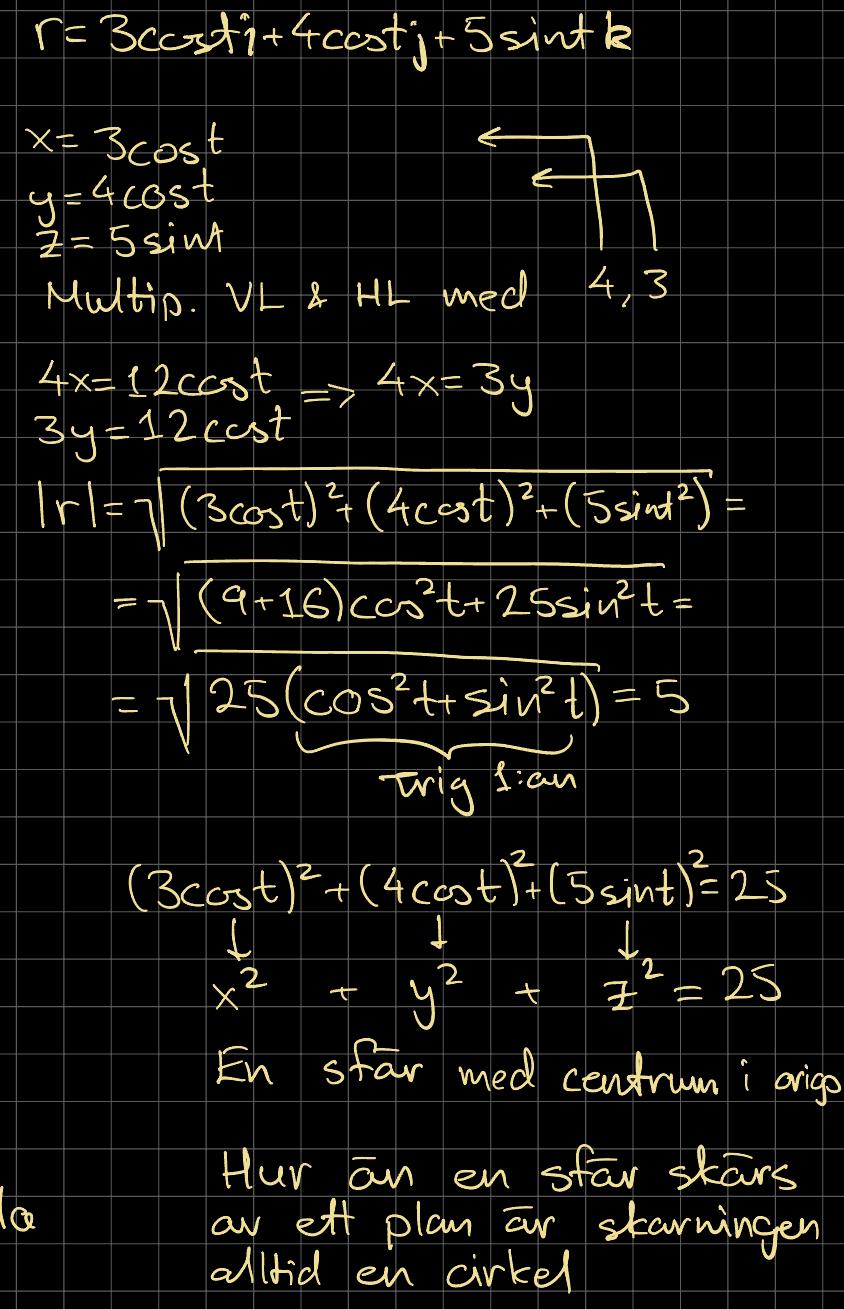 r = 3costi + 4costj + 5sintk
x = 3cost
y = 4cost
z = 5sint
Multip. VL & HL med 4, 3
4x = 12cost => 4x = 3y
3y = 12cost
|r| = √((3cost)² + (4cost)² + (5sint²)) =
= √((9+16)cos²t + 25sin²t =
= √(25(cos²t + sin²t)) = 5
Trig 1:an
(3cost)² + (4cost)² + (5sint)² = 25
↓ ↓ ↓
x² + y² + z² = 25
En sfär med centrum i origo
Hur än en sfär skärs
av ett plan är skarningen
alltid en cirkel